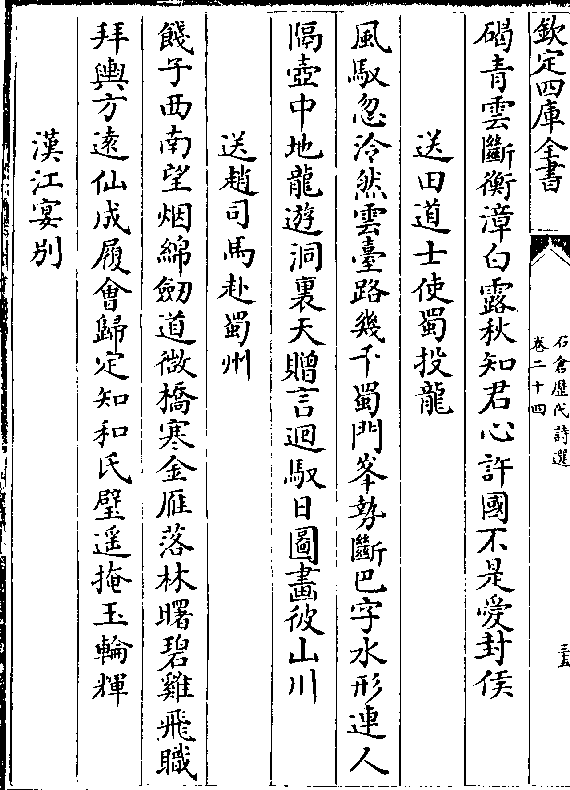 欽定四庫全書
石倉歷代詩選
卷二十四
碣青雲斷衡漳白露秋知君心許國不是愛封侯
送田道士使蜀投龍
風馭忽泠然雲臺路幾千蜀門峯勢斷巴字水形連人
隔壺中地龍遊洞裏天贈言迴馭日圖畫彼山川
送趙司馬赴蜀州
餞子西南望烟綿劒道微橋寒金雁落林曙碧雞飛職
拜輿方遠仙成履會歸定知和氏璧遥掩玉輪輝
漢江宴别